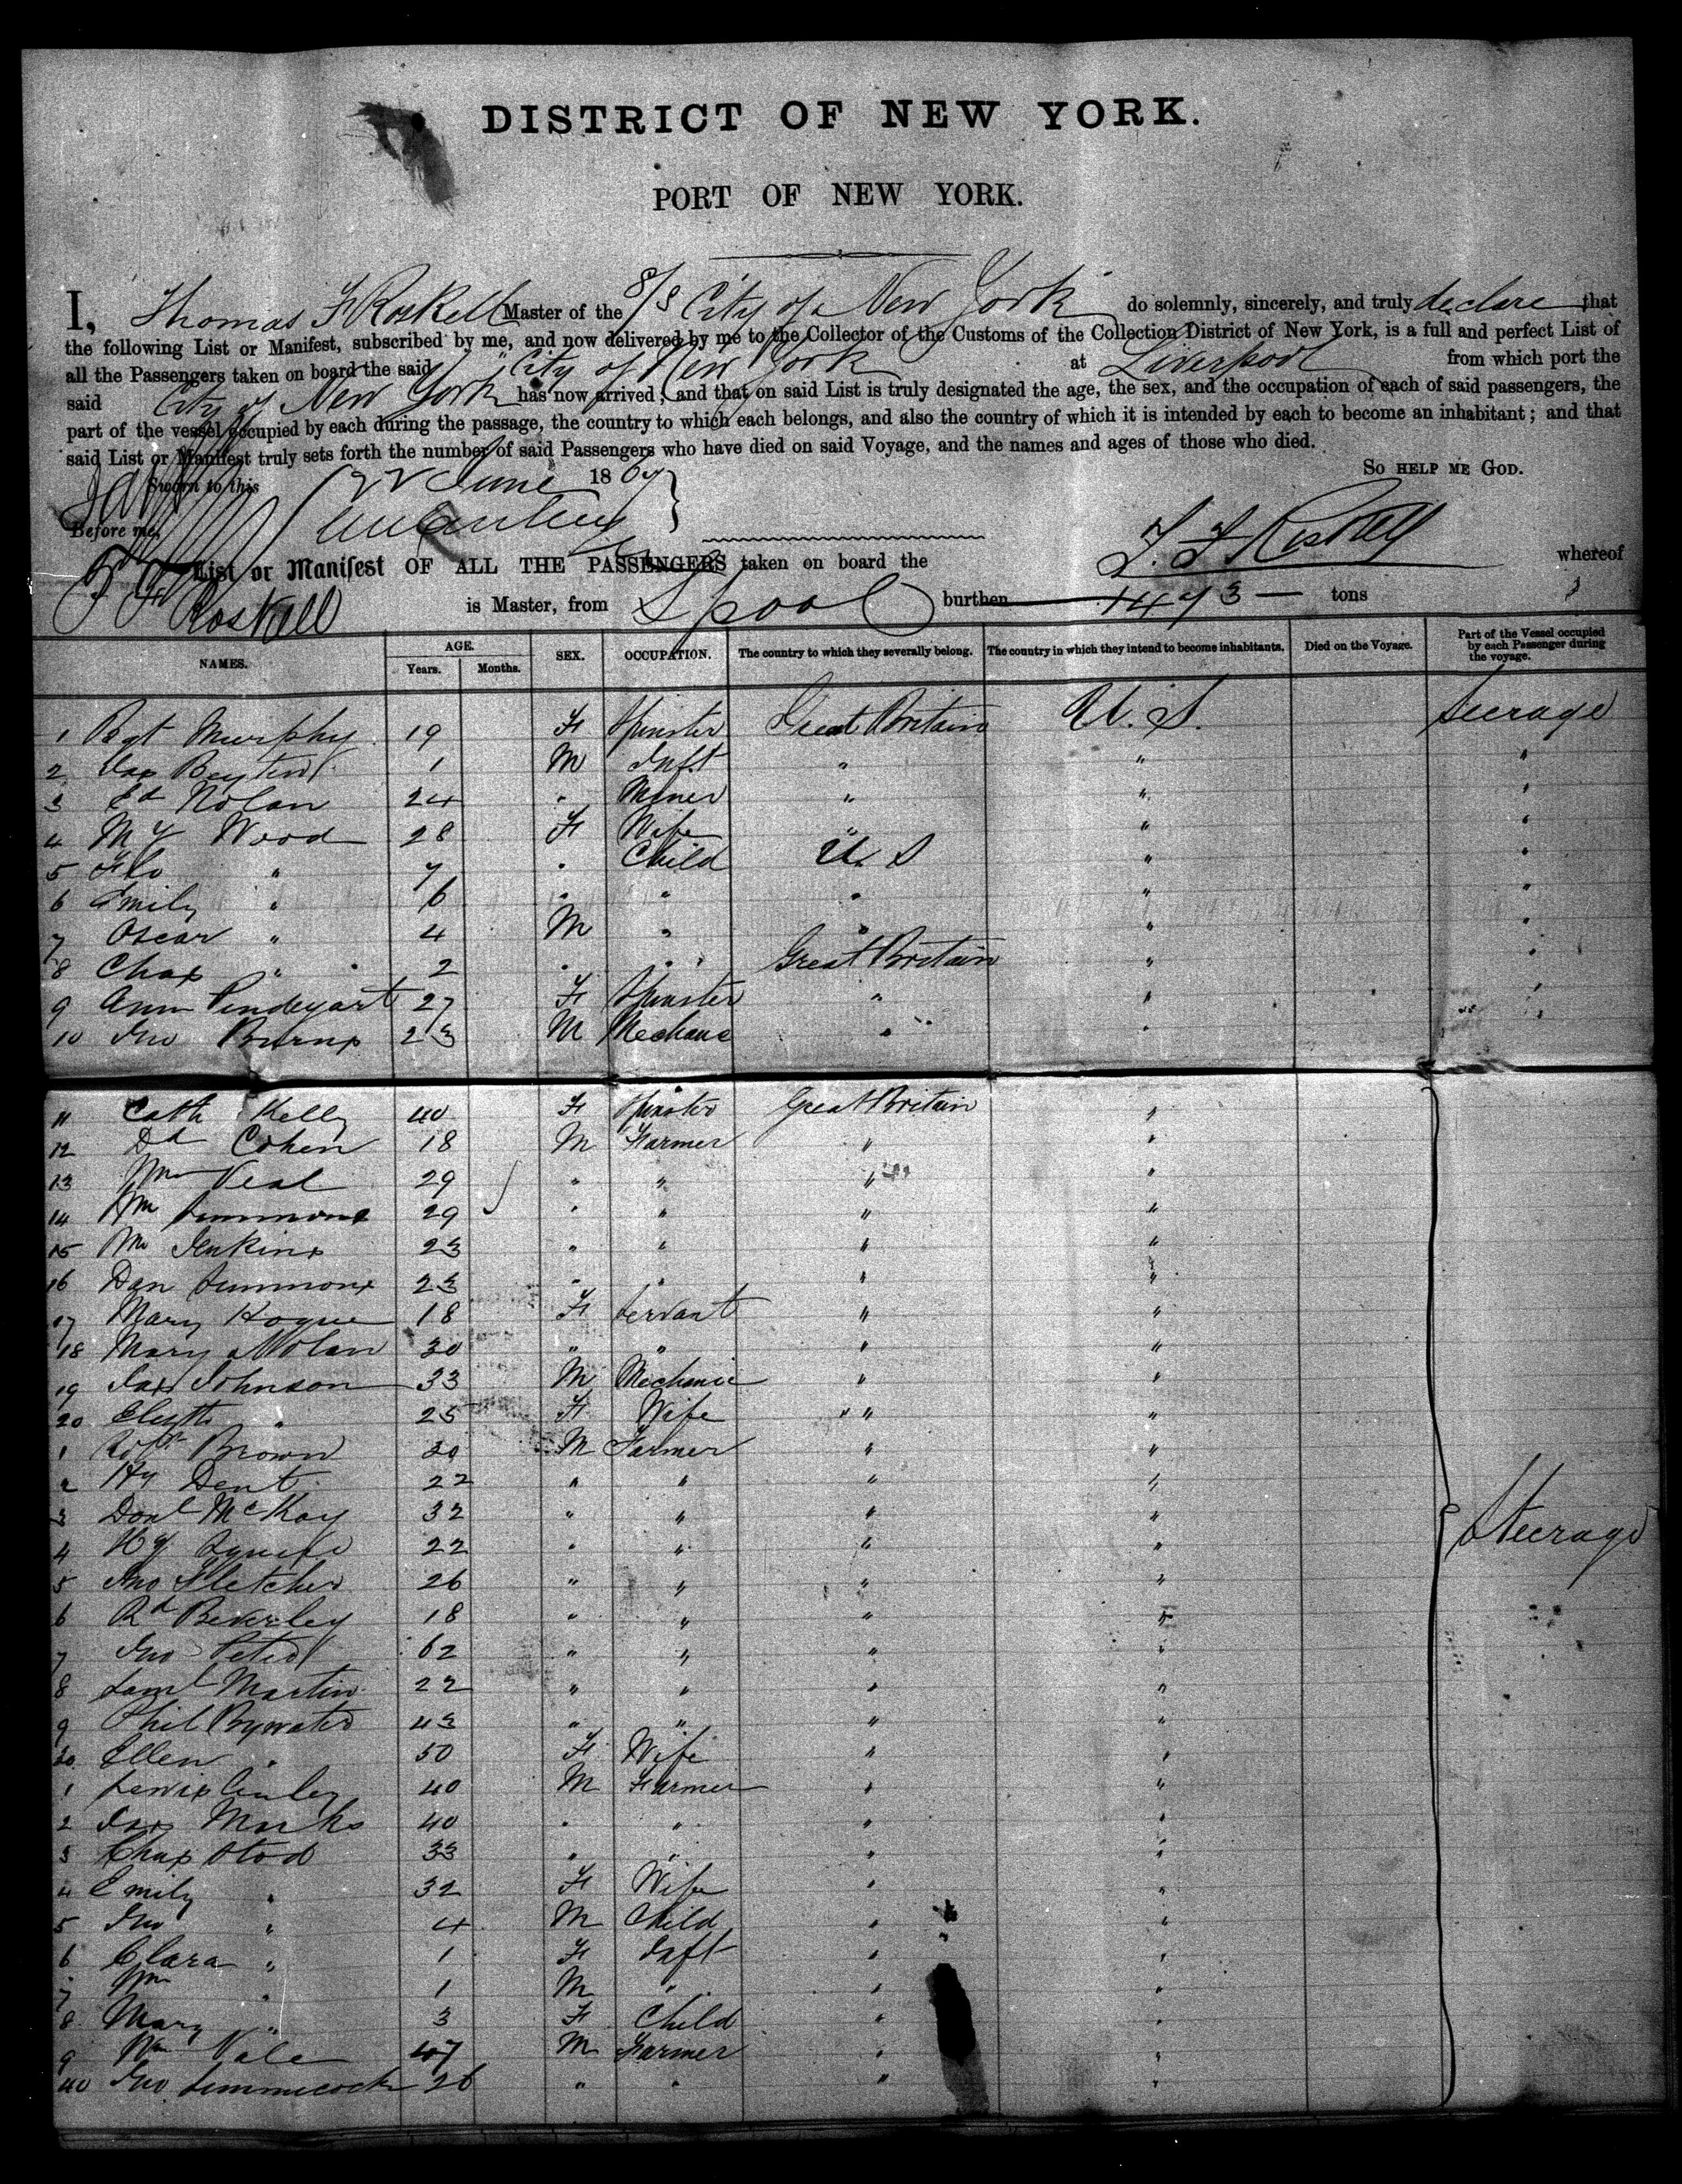 DISTRICT OF NEW YORK.
PORT OF NEW YORK.
I, Thomas F Roskell Master of the S/S City of New York do solemnly, sincerely, and truly declare that
the following List or Manifest, subscribed by me, and now delivered by me to the Collector of the Customs of the Collection District of New York, is a full and perfect List of
all the Passengers taken on board the said "City of New York at Liverpool from which port the
said City of New York has now arrived; and that on said List is truly designated the age, the sex, and the occupation of each of said passengers, the
part of the vessel occupied by each during the passage, the country to which each belongs, and also the country of which it is intended by each to become an inhabitant; and that
said List or Manifest truly sets forth the number of said Passengers who have died on said Voyage, and the names and ages of those who died.
SO HELP ME GOD.
Sworn to this 22 June 186
Before me,
T. F Roskell
List or Manifest OF ALL THE PASSENGERS taken on board the whereof
T F Roskell is Master, from Lpool burthen 1473 tons
NAMES. AGE. Years. Months. SEX. OCCUPATION. The country to which they severally belong. The country in which they intend to become inhabitants. Died on the Voyage. Part of the Vessel occupied by each Passenger during the voyage.
1 Bgt Murphy 19 F Spinster Great Britain U.S. Steerage
2 Jas 1 M Inft " " "
3 Ed Nolan 24 " Miner " " "
4 My Wood 28 F Wife " " "
5 Flo " 7 " Child U.S " "
6 Emily " 6 " " " " "
7 Oscar " 4 M " " " "
8 Chas " 2 " " Great Britain " "
9 Ann 27 F Spinster " " "
10 Jno Burns 23 M Mechanc " " "
11 Cath Kelly 40 F Spinster Great Britain "
12 Dd Cohen 18 M Farmer " "
13 Wm Veal 29 " " " "
14 Wm Simmons 29 " " " "
15 Wm Jenkins 23 " " " "
16 Dan Simmons 23 " " " "
17 Mary Hogue 18 F Servant " "
18 Mary Nolan 30 " " " "
19 Jas Johnson 33 M Mechanic " "
20 Elizth " 25 F Wife " "
1 Robt Brown 30 M Farmer " "
2 Hy Dent 22 " " " "
3 Donl McKay 32 " " " "
4 Hy Squire 22 " " " " Steerage
5 Jno Fletcher 26 " " " "
6 Rd Beverley 18 " " " "
7 Jno Peter 62 " " " "
8 Saml Martin 22 " " " "
9 Phil Bywater 43 " " " "
30 Ellen " 50 F Wife " "
1 Lewis 40 M Farmer " "
2 Jas Marks 40 " " " "
3 Chas Stod 33 " " " "
4 Emily " 32 F Wife " "
5 Jno " 4 M Child " "
6 Clara " 1 F Inft " "
7 Wm " 1 M " " "
8 Mary " 3 F Child " "
9 Wm Vale 47 M Farmer " "
40 Jno 26 " " " "